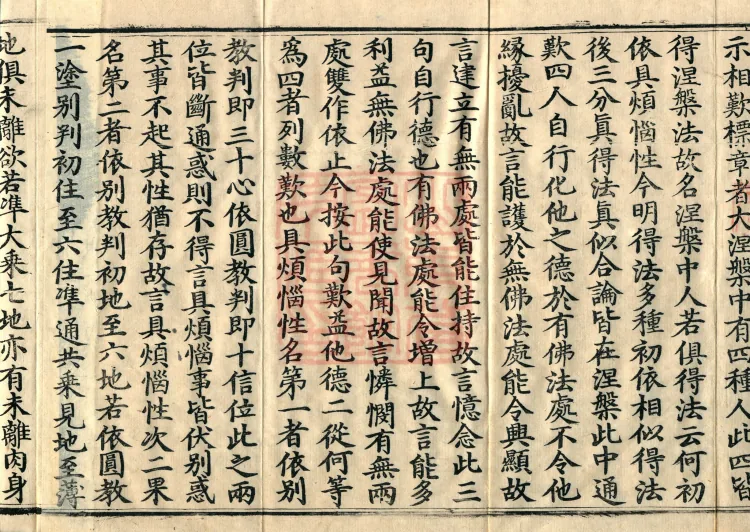 示相歎標章者大涅槃中有四種人此四皆
得涅槃法故名涅槃中人若俱得法云何初
依具煩惱性今明得法多種初依相似得法
後三分真得法真似合論皆在涅槃此中通
歎四人自行化他之德於有佛法處不令他
緣擾亂故言能護於無佛法處能令興顯故
言建立有無兩處皆能住持故言憶念此三
句自行德也有佛法處能令增上故言能多
利益無佛法處能使見聞故言憐愍有無兩
處雙作依止今按此句歎益他德二從何等
為四者列數歎也具煩惱性名第一者依別
教判即三十心依圓教判即十信位此之兩
位皆斷通惑則不得言具煩惱事皆伏別惑
其事不起其性猶存故言具煩惱性次二果
名第二者依別教判初地至六地若依圓教
一塗別判初住至六住準通共乘見地至薄
地俱未離欲若準大乘七地亦有未離肉身